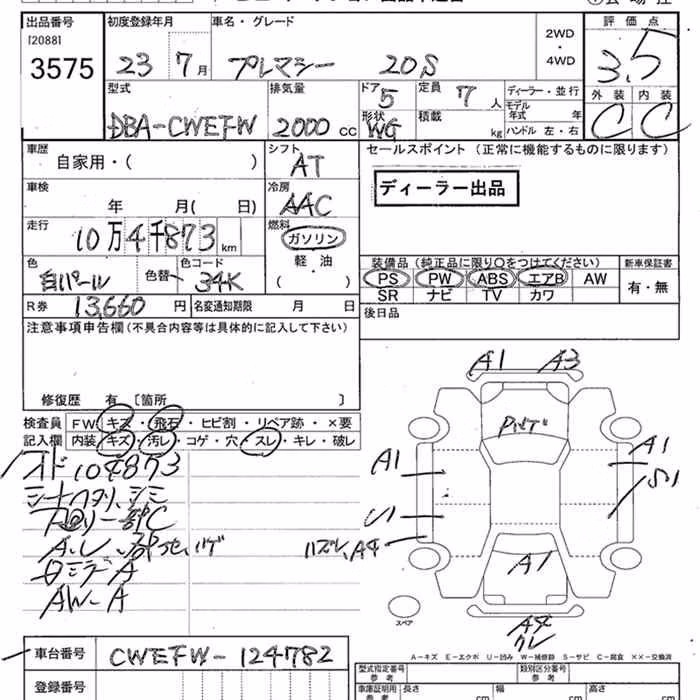 出品番号 初度登録年月 車名・グレード 評価点
[2088] 3575 23 7月 プレマシー 20S 2WD・4WD 3.5
型式 排気量 ドア 定員 ディーラー・並行 外装 内装
DBA-CWEFW 2000 cc 5 7人 モデル年式 年 C C
形状 WG 積載 kg ハンドル 左・右
車歴 シフト セールスポイント (正常に機能するものに限ります)
自家用・( ) AT
ディーラー出品
車検 冷房
年 月( 日) AAC
走行 燃料
10万4千873 km ガソリン
軽・油
( )
装備品 (純正品に限り○をつけてください) 新車保証書
色 色替 色コード
白パール 34K
PS PW ABS エアB AW 有・無
SR ナビ TV カワ
R券 13,660円 名変通知期限 月 日
後日品
注意事項申告欄 (不具合内容等は具体的に記入して下さい)
修復歴 有 [箇所 ]
検査員記入欄
FW キズ・飛石・ヒビ割・リペア跡・×要
内装 キズ・汚レ・コゲ・穴・スレ・キレ・破レ
104873
シミ
A
AW-A
A1 A3
A1 A1
S1
U1
ハズレ、A4
A1
A4
スペア
A-キズ E-エクボ U-凹み W-補修跡 S-サビ C-腐食 ××-交換済
車台番号 CWEFW-124782
登録番号
型式指定番号 参考 類別区分番号 参考
車庫証明用 参考 長さ cm 幅 cm 高さ cm